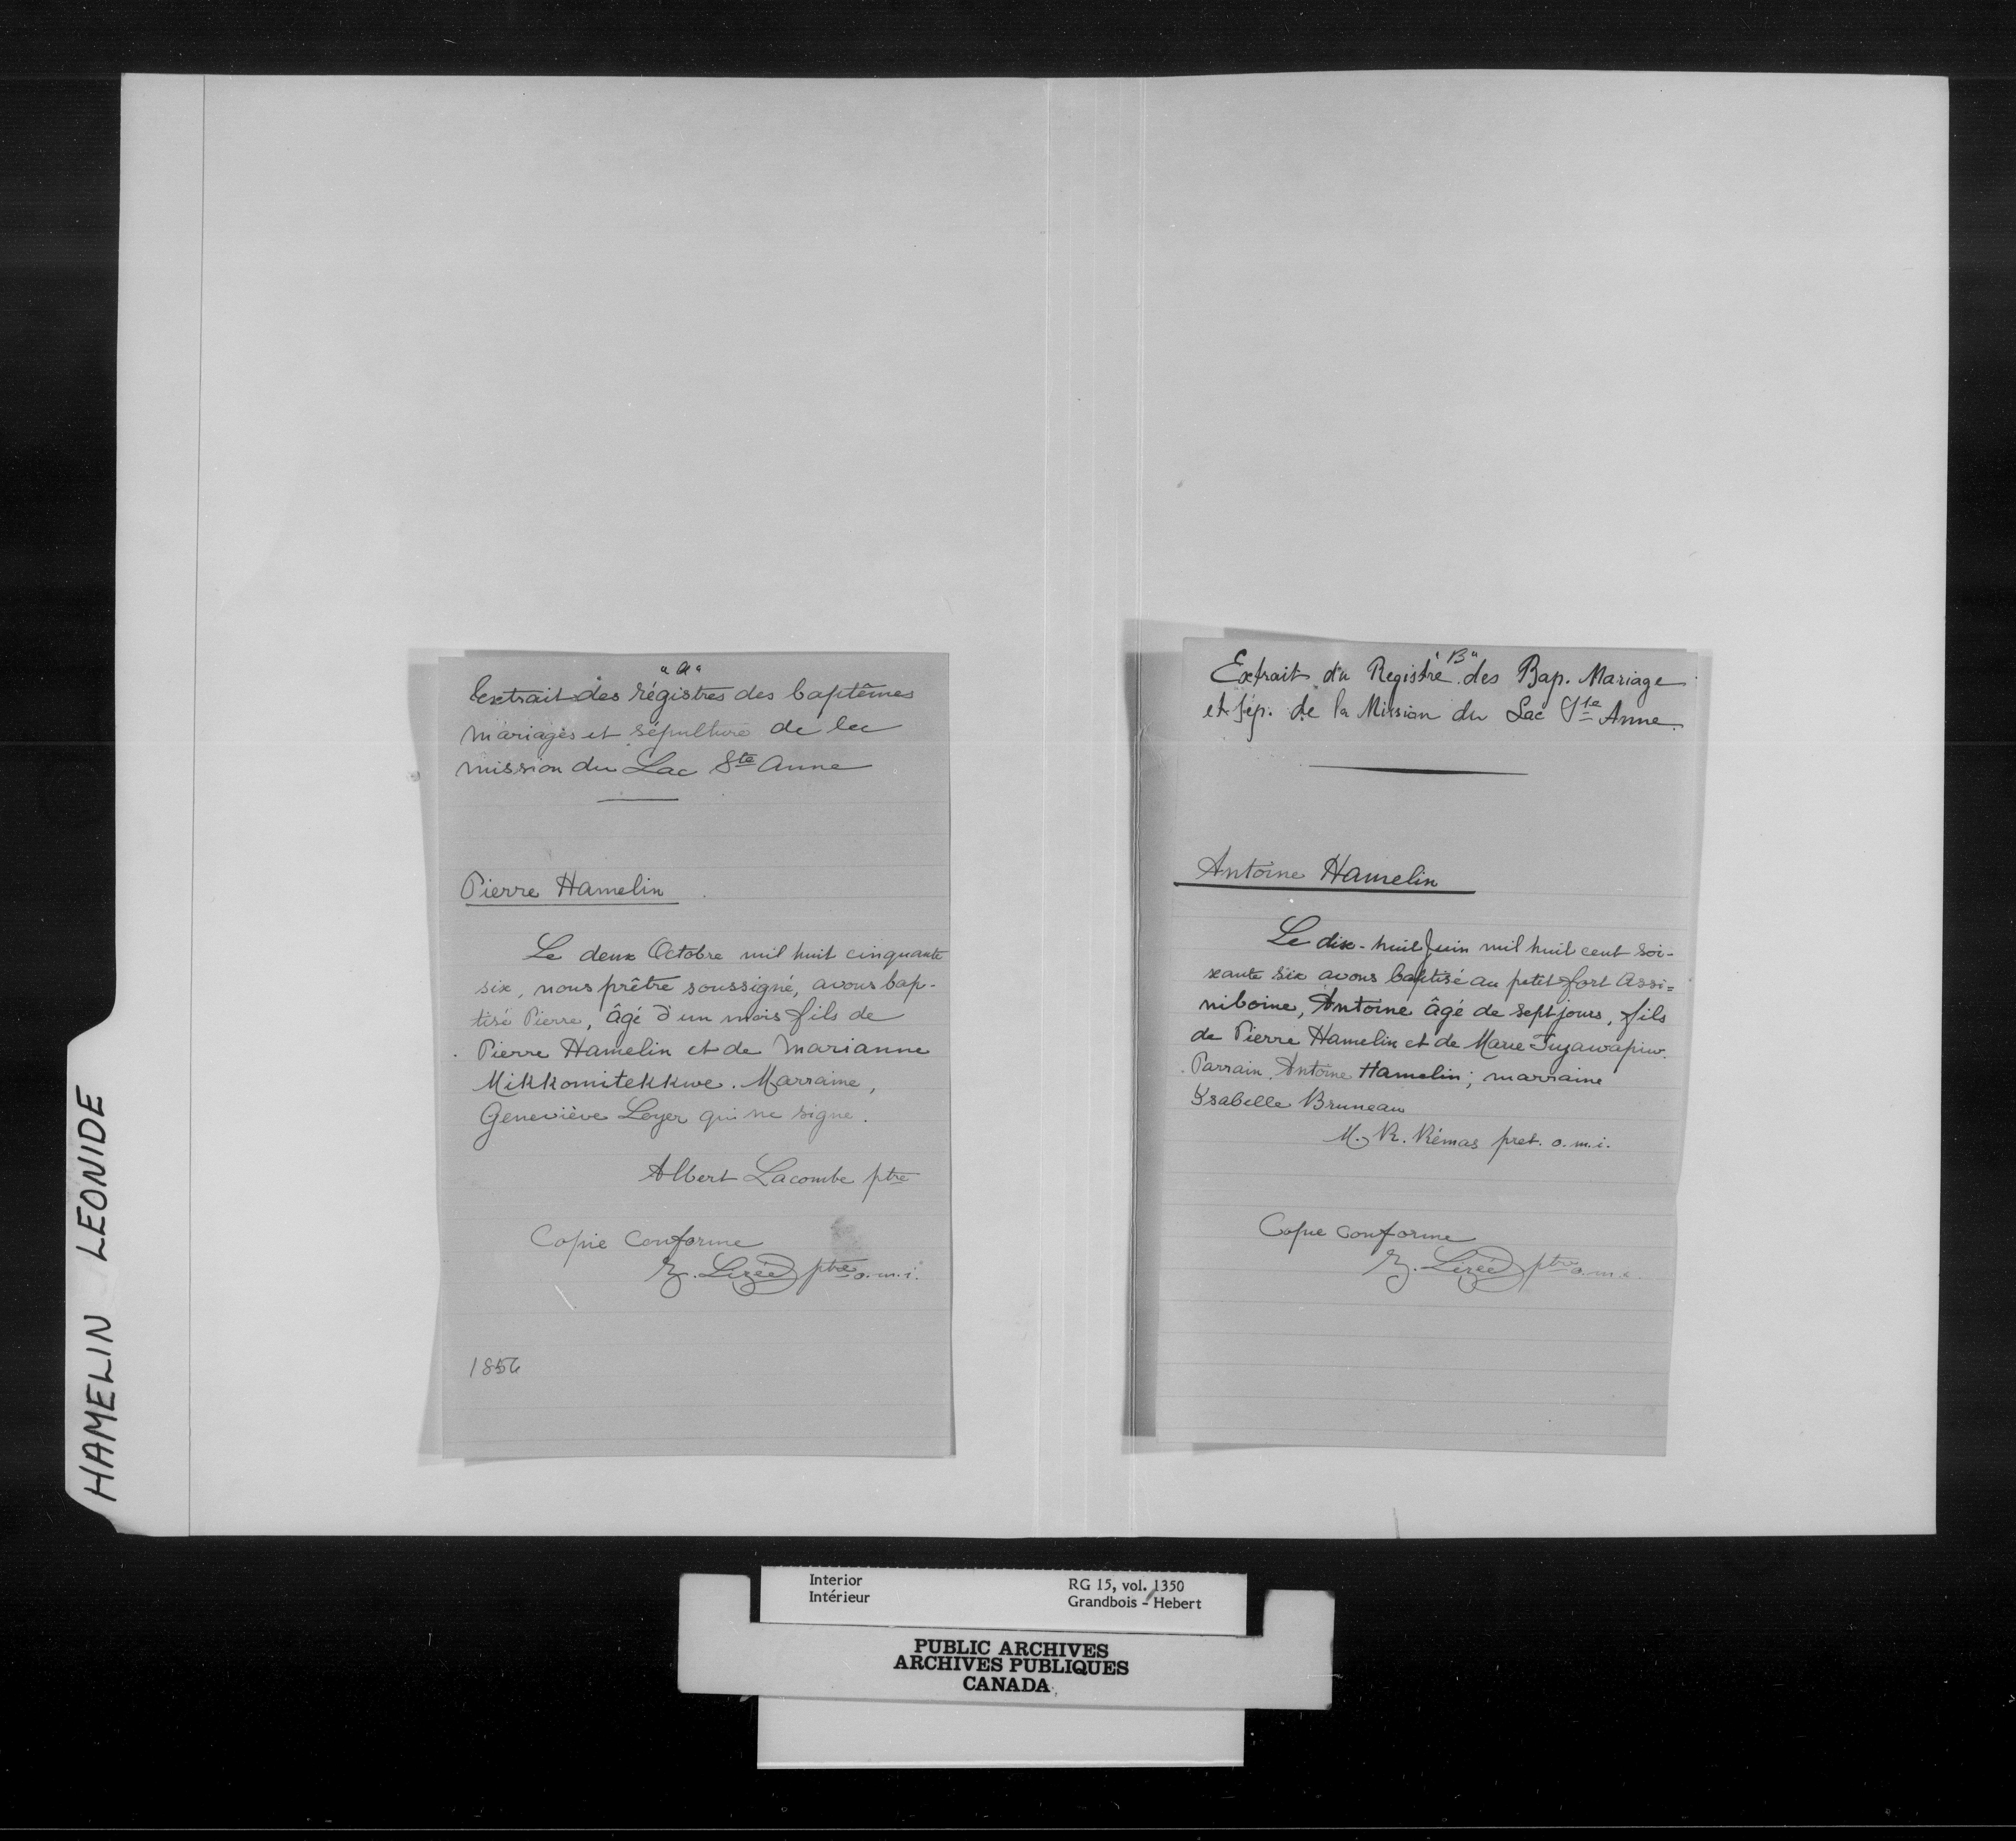 HAMELIN LEONIDE
"a"
Extrait des régistres des baptêmes
mariages et sépulture de la
mission du Lac Ste Anne
Pierre Hamelin
Le deux Octobre mil huit cinquante
six, nous prêtre soussigné, avons bap-
tisé Pierre, âgé d'un mois fils de
Pierre Hamelin et de Marianne
Mikkomitekkwe. Marraine,
Geneviève Loyer qui ne signe.
Albert Lacombe ptre
Copie conforme
Z. Lizée ptre o.m.i.
1856
"B"
Extrait du Registre des Bap. Mariage
et Sép. de la Mission du Lac Ste Anne.
Antoine Hamelin
Le dix-huit Juin mil huit cent soi-
xante six avons baptisé au petit fort Assi=
niboine, Antoine âgé de sept jours, fils
de Pierre Hamelin et de Marie
Parrain, Antoine Hamelin; marraine
Ysabelle Bruneau
M. R. Rémas pret. o.m.i.
Copie conforme
Z. Lizée ptre o.m.i.
Interior
Intérieur
RG 15, vol. 1350
Grandbois - Hebert
PUBLIC ARCHIVES
ARCHIVES PUBLIQUES
CANADA